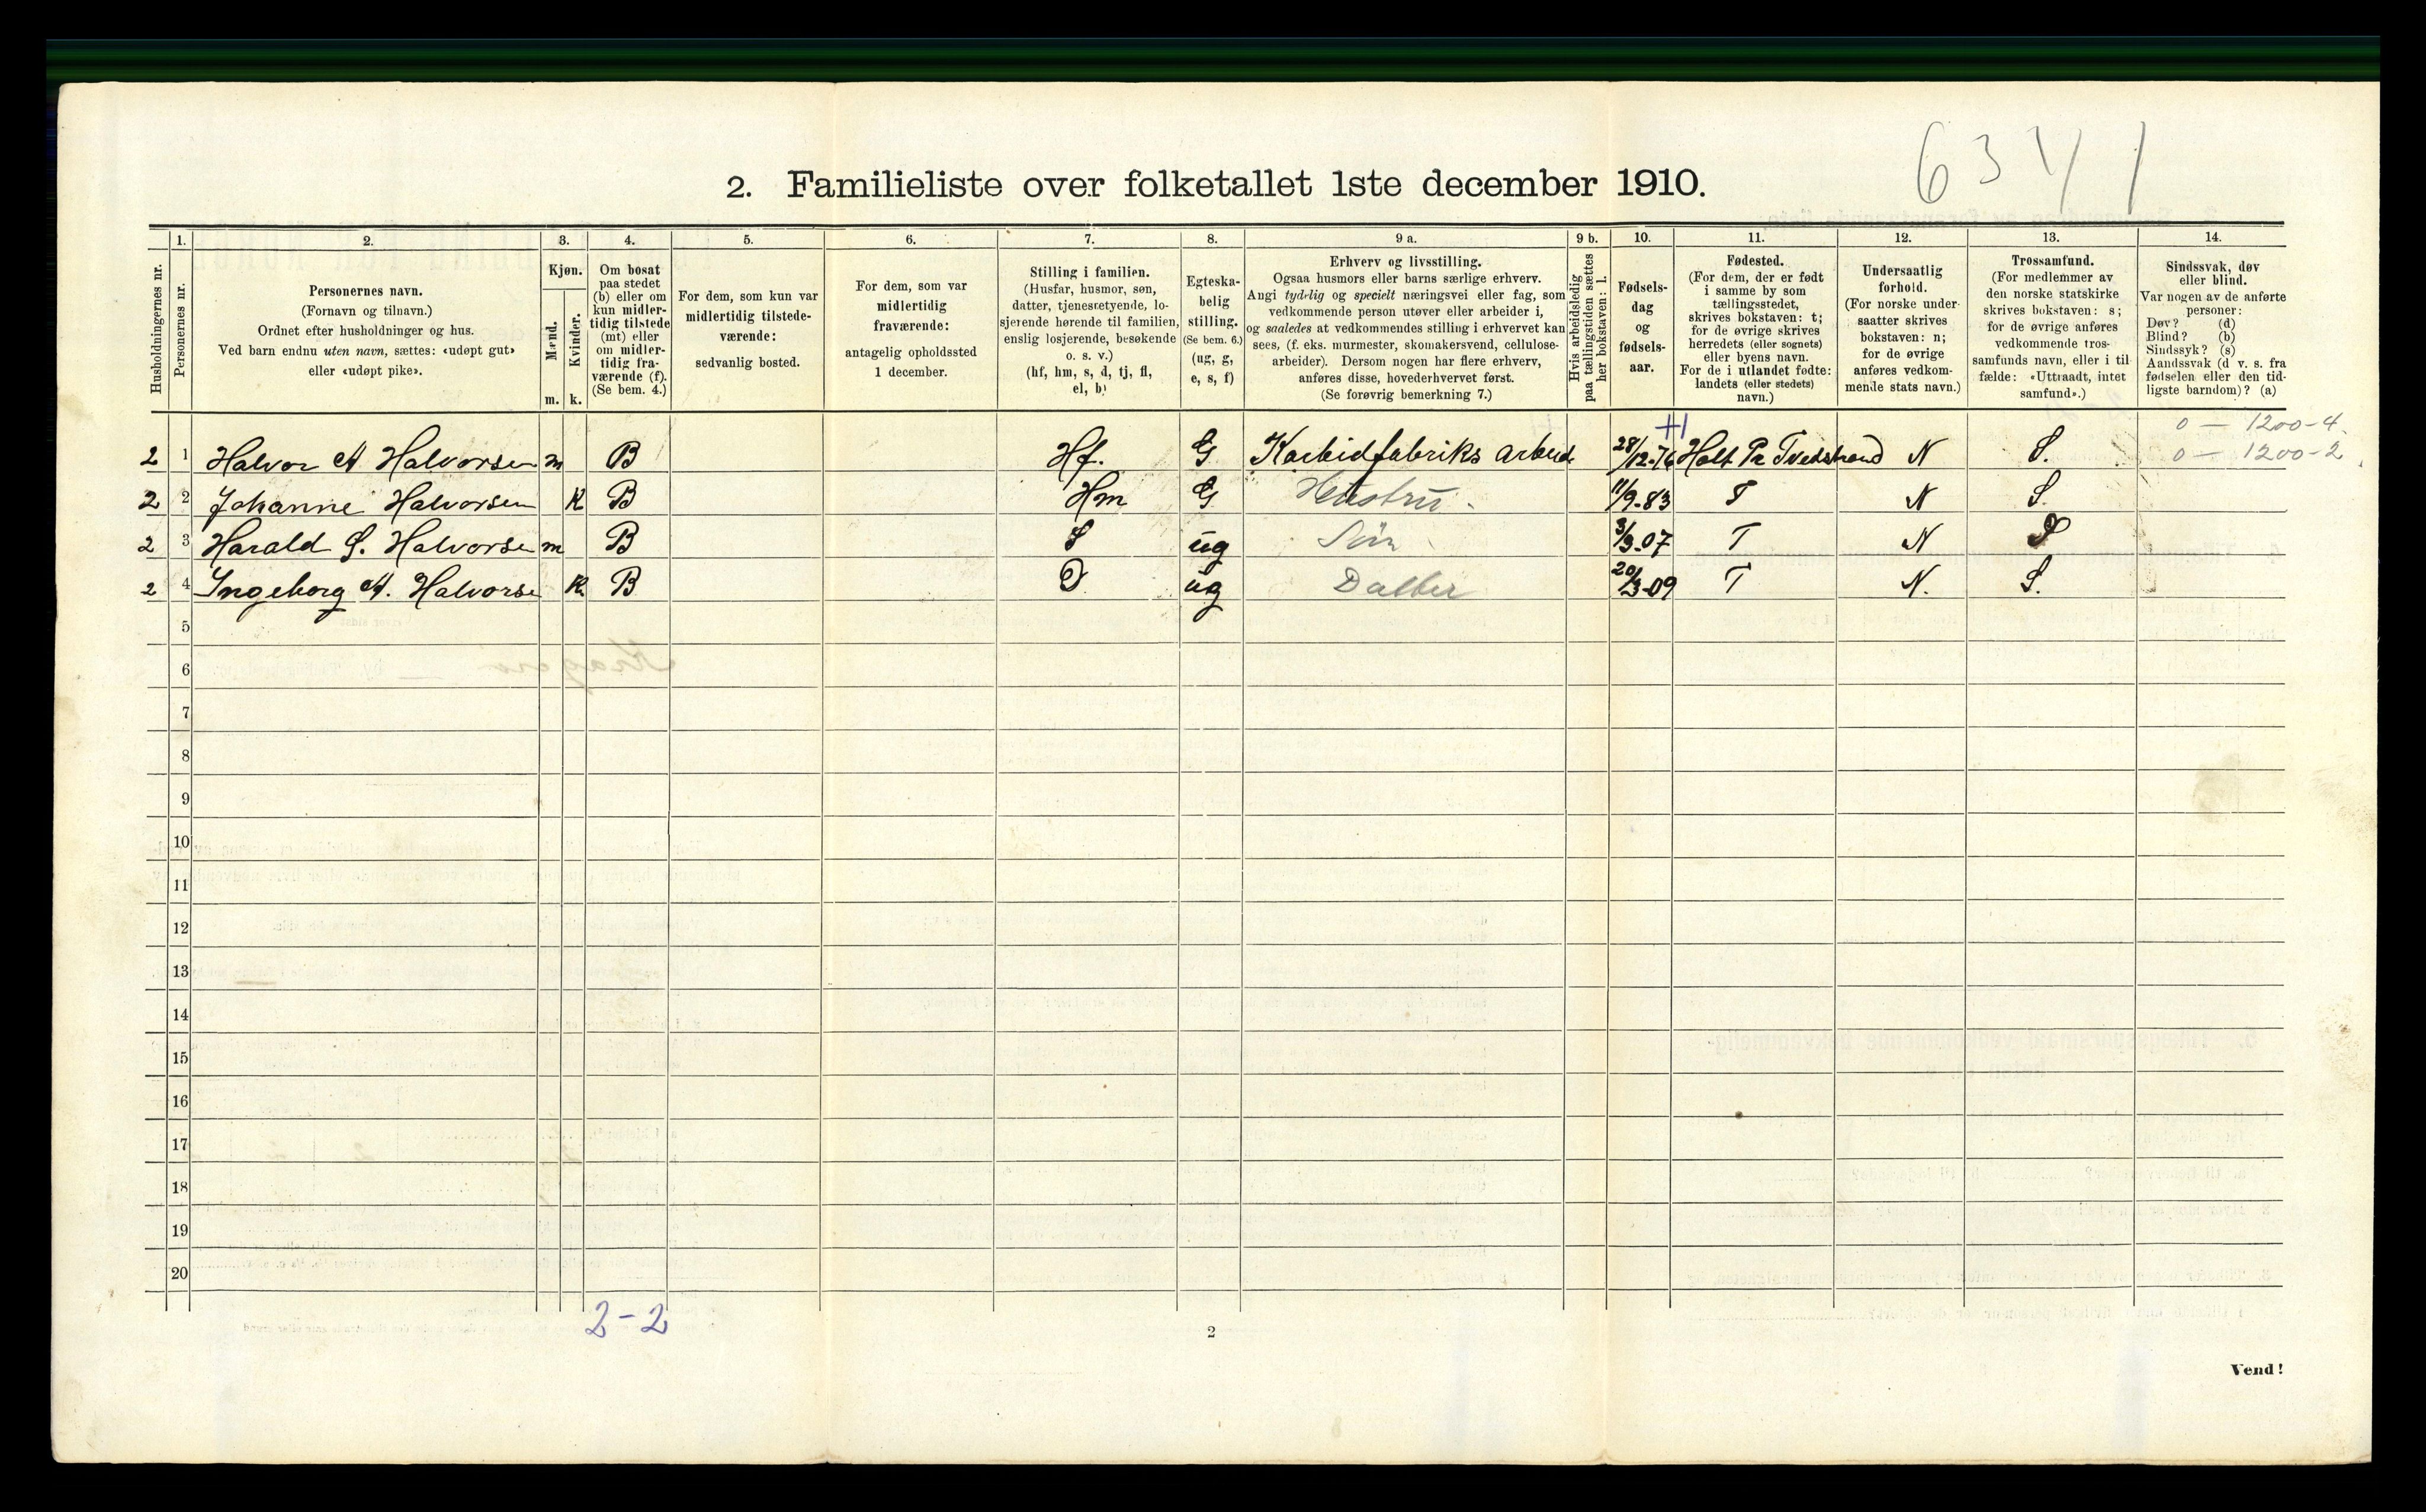 6341
2. Familieliste over folketallet 1ste december 1910.
1. 2. 3. 4. 5. 6. 7. 8. 9 a. 9 b. 10. 11. 12. 13. 14.
Husholdningernes nr.
Personernes nr.
Personernes navn.
(Fornavn og tilnavn.)
Ordnet efter husholdninger og hus.
Ved barn endnu uten navn, sættes: «udøpt gut»
eller «udøpt pike».
Kjøn.
Mænd.
Kvinder.
m. k.
Om bosat
paa stedet
(b) eller om
kun midler-
tidig tilstede
(mt) eller
om midler-
tidig fra-
værende (f).
(Se bem. 4.)
For dem, som kun var
midlertidig tilstede-
værende:
sedvanlig bosted.
For dem, som var
midlertidig
fraværende:
antagelig opholdssted
1 december.
Stilling i familien.
(Husfar, husmor, søn,
datter, tjenestetyende, lo-
sjerende hørende til familien,
enslig losjerende, besøkende
o. s. v.)
(hf, hm, s, d, tj, fl,
el, b)
Egteska-
belig
stilling.
(Se bem. 6.)
(ug, g,
e, s, f)
Erhverv og livsstilling.
Ogsaa husmors eller barns særlige erhverv.
Angi tydelig og specielt næringsvei eller fag, som
vedkommende person utøver eller arbeider i,
og saaledes at vedkommendes stilling i erhvervet kan
sees, (f. eks. murmester, skomakersvend, cellulose-
arbeider). Dersom nogen har flere erhverv,
anføres disse, hovederhvervet først.
(Se forøvrig bemerkning 7.)
Hvis arbeidsledig
paa tællingstiden sættes
her bokstaven: l.
Fødsels-
dag
og
fødsels-
aar.
Fødested.
(For dem, der er født
i samme by som
tællingsstedet,
skrives bokstaven: t;
for de øvrige skrives
herredets (eller sognets)
eller byens navn.
For de i utlandet fødte:
landets (eller stedets)
navn.)
Undersaatlig
forhold.
(For norske under-
saatter skrives
bokstaven: n;
for de øvrige
anføres vedkom-
mende stats navn.)
Trossamfund.
(For medlemmer av
den norske statskirke
skrives bokstaven: s;
for de øvrige anføres
vedkommende tros-
samfunds navn, eller i til-
fælde: «Uttraadt, intet
samfund».)
Sindssvak, døv
eller blind.
Var nogen av de anførte
personer:
Døv? (d)
Blind? (b)
Sindssyk? (s)
Aandssvak (d v. s. fra
fødselen eller den tid-
ligste barndom)? (a)
0 — 1200-4.
2 1 Halvor A Halvorsen m B Hf. G Karbidfabriks Arbeid 28/12-76 Holt Pr Tvedstrand N S. 0 — 1200-2
2 2 Johanne Halvorsen K B Hm G Hustru 11/9-83 T N S.
2 3 Harald S. Halvorse m B S ug Søn 3/3-07 T N S
2 4 Ingeborg A. Halvorse K B D ug Datter 20/3-09 T N. S.
5
6
7
8
9
10
11
12
13
14
15
16
17
18
19
20
2-2
2
Vend!